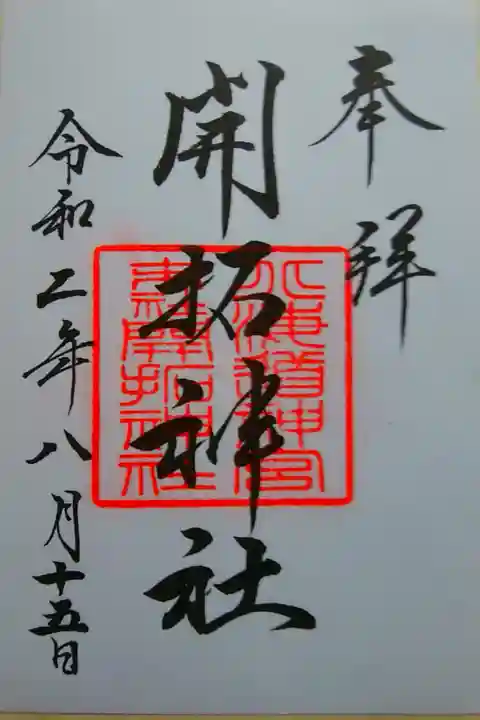 奉拜
開拓神社
北海道神宮
末社開拓神社
令和二年八月十五日